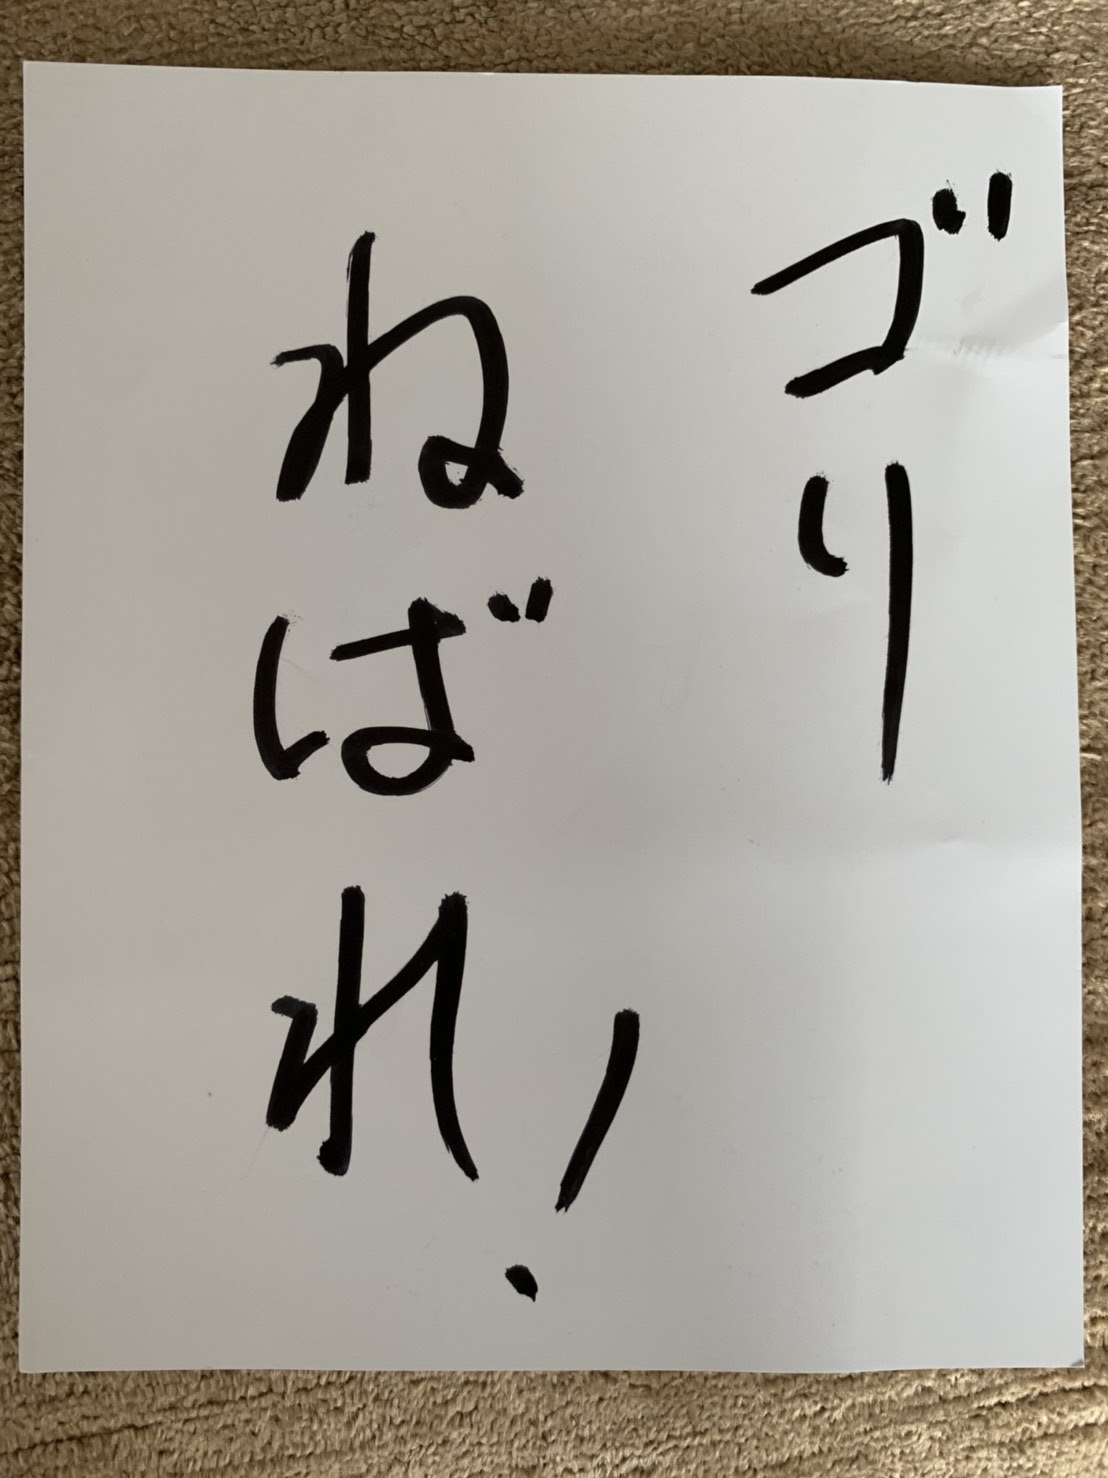 ゴリ
ねばれ!